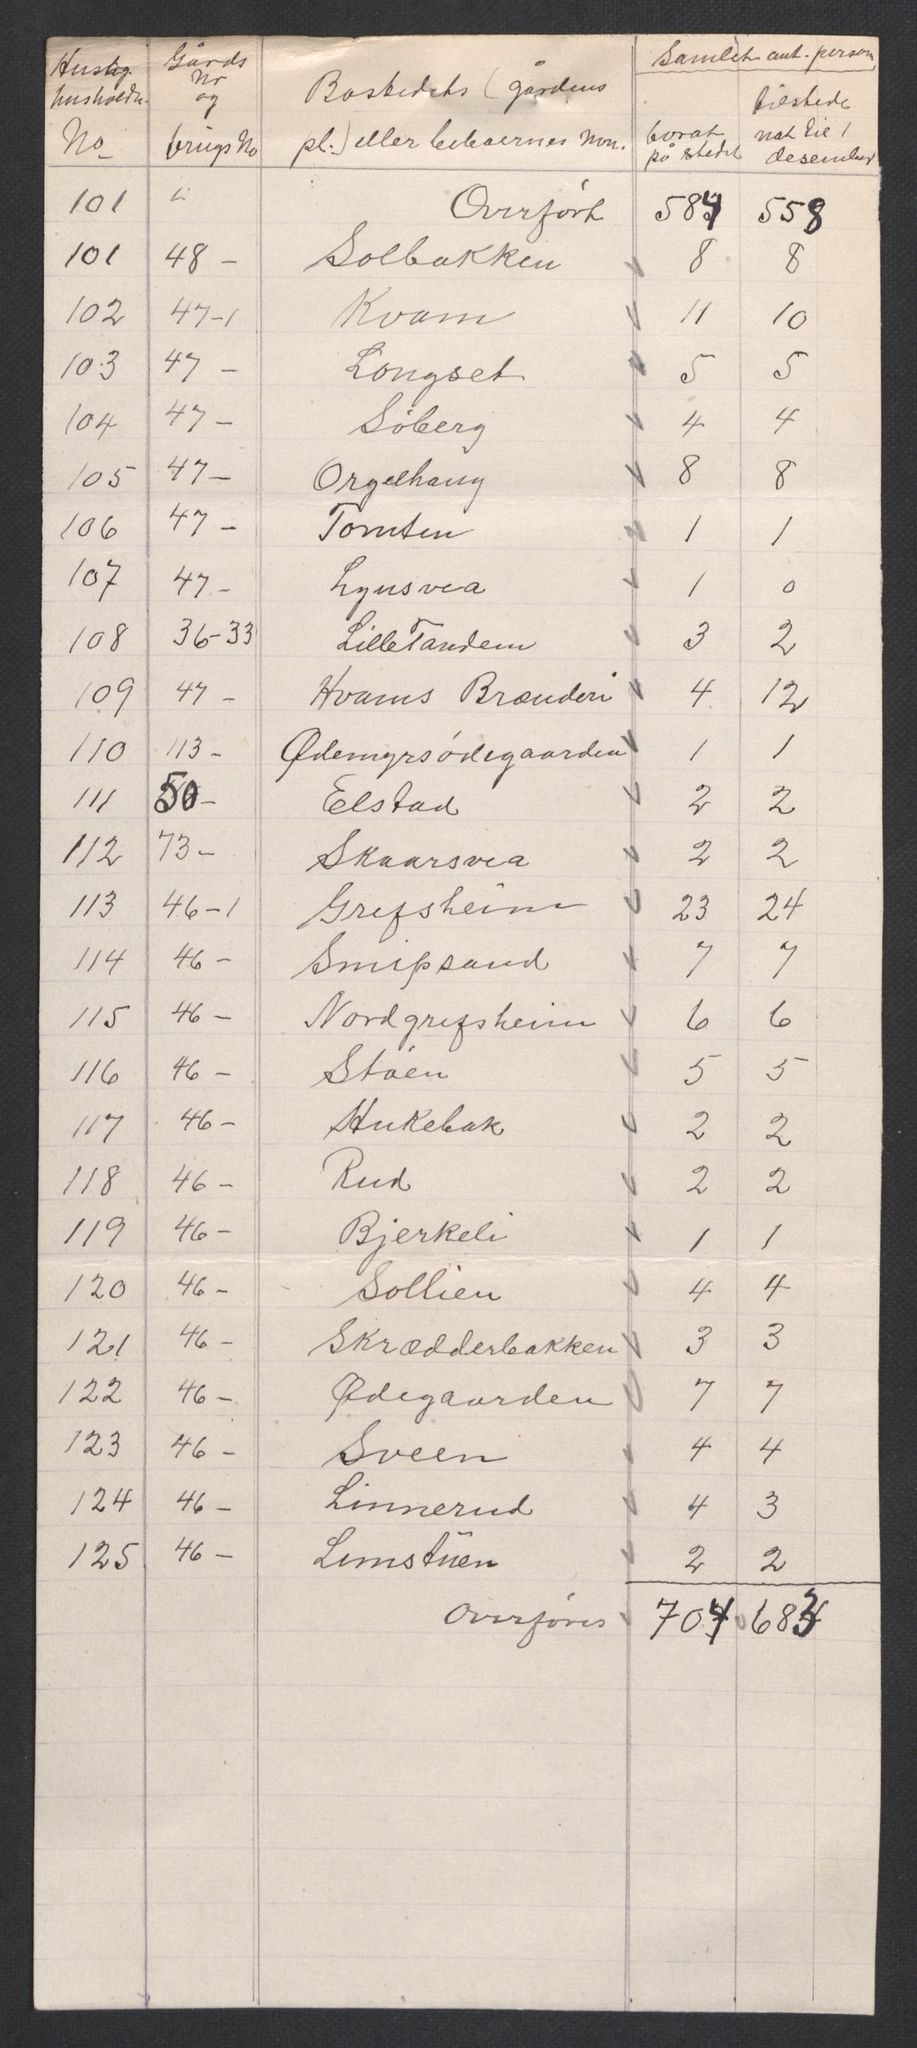 Huslig husholdn. No
Gårds No og brugs No
Bostedets (gårdens pl.) eller beboernes navn.
Samlet ant. person
borat på stedet
tilstede nat til 1 desember
101 " Overført 584 558
101 48 - Solbakken 8 8
102 47-1 Kvam 11 10
103 47 - Longset 5 5
104 47 - Söberg 4 4
105 47 - Orgelhaug 8 8
106 47 - Tomten 1 1
107 47 - Lynsvea 1 0
108 36-33 Lille Tandem 3 2
109 47 - Kvams Brænderi 4 12
110 113 - Ødemyrsödegaarden 1 1
111 50 - Elstad 2 2
112 73 - Skaarsvea 2 2
113 46-1 Grefsheim 23 24
114 46 - Smipsand 7 7
115 46 - Nordgrefsheim 6 6
116 46 - Stöen 5 5
117 46 - Hukebak 2 2
118 46 - Rud 2 2
119 46 - Bjerkeli 1 1
120 46 - Sollien 4 4
121 46 - Skrædderbakken 3 3
122 46 - Ødegaarden 7 7
123 46 - Sveen 4 4
124 46 - Linnerud 4 3
125 46 - Limstuen 2 2
Overføres 704 683